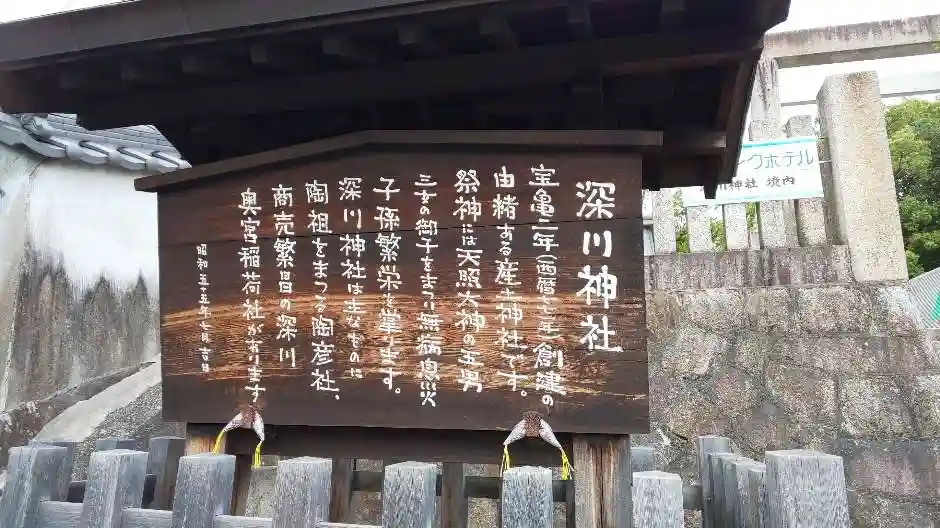 深川神社
宝亀二年(西暦七七一年)創建の
由緒ある産土神社です。
祭神には天照大神の五男
三女の御子をまつり無病息災
子孫繁栄を挙ります。
深川神社は主なものに
陶祖をまつる陶彦社、
商売繁昌の深川
奥宮稲荷社があります
昭和五十五年七月吉日
ークホテル
神社 境内